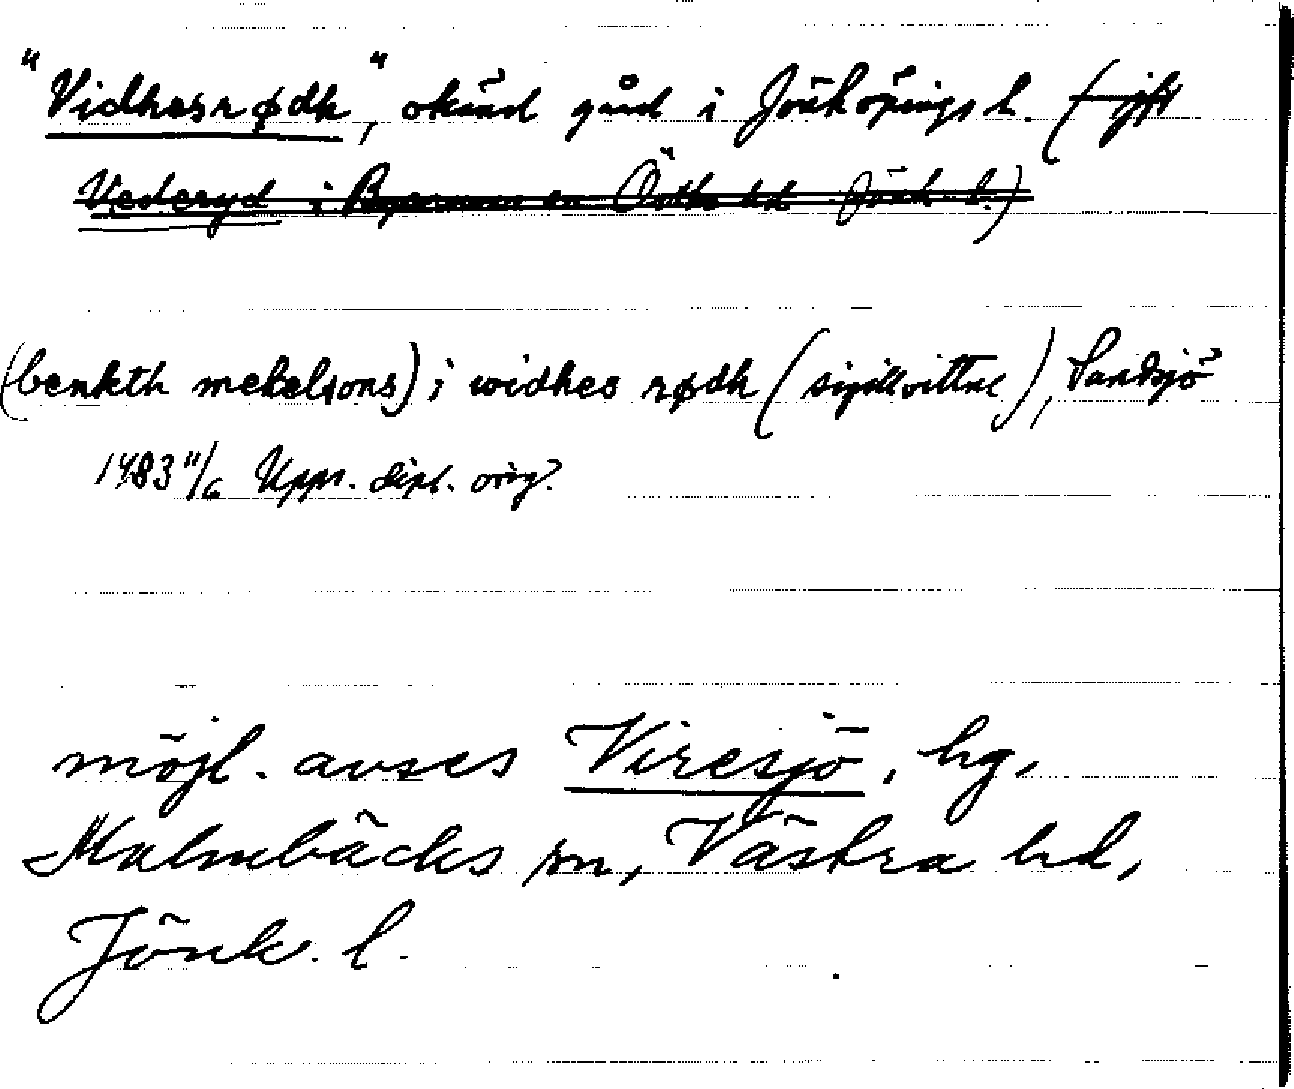 "Vidhesrødh", okänd gård i Jönköpings l. (jfr
Vederyd i Byarums sn Östbo hd Jönk l.)
(benkth mekelsons) i widhes rødh (sigillvittne), Sandsjö
1483 11/6 Upps. dipl. orig.
möjl. avses Viresjö, hg,
Malmbäcks sn, Västra hd,
Jönk. l.